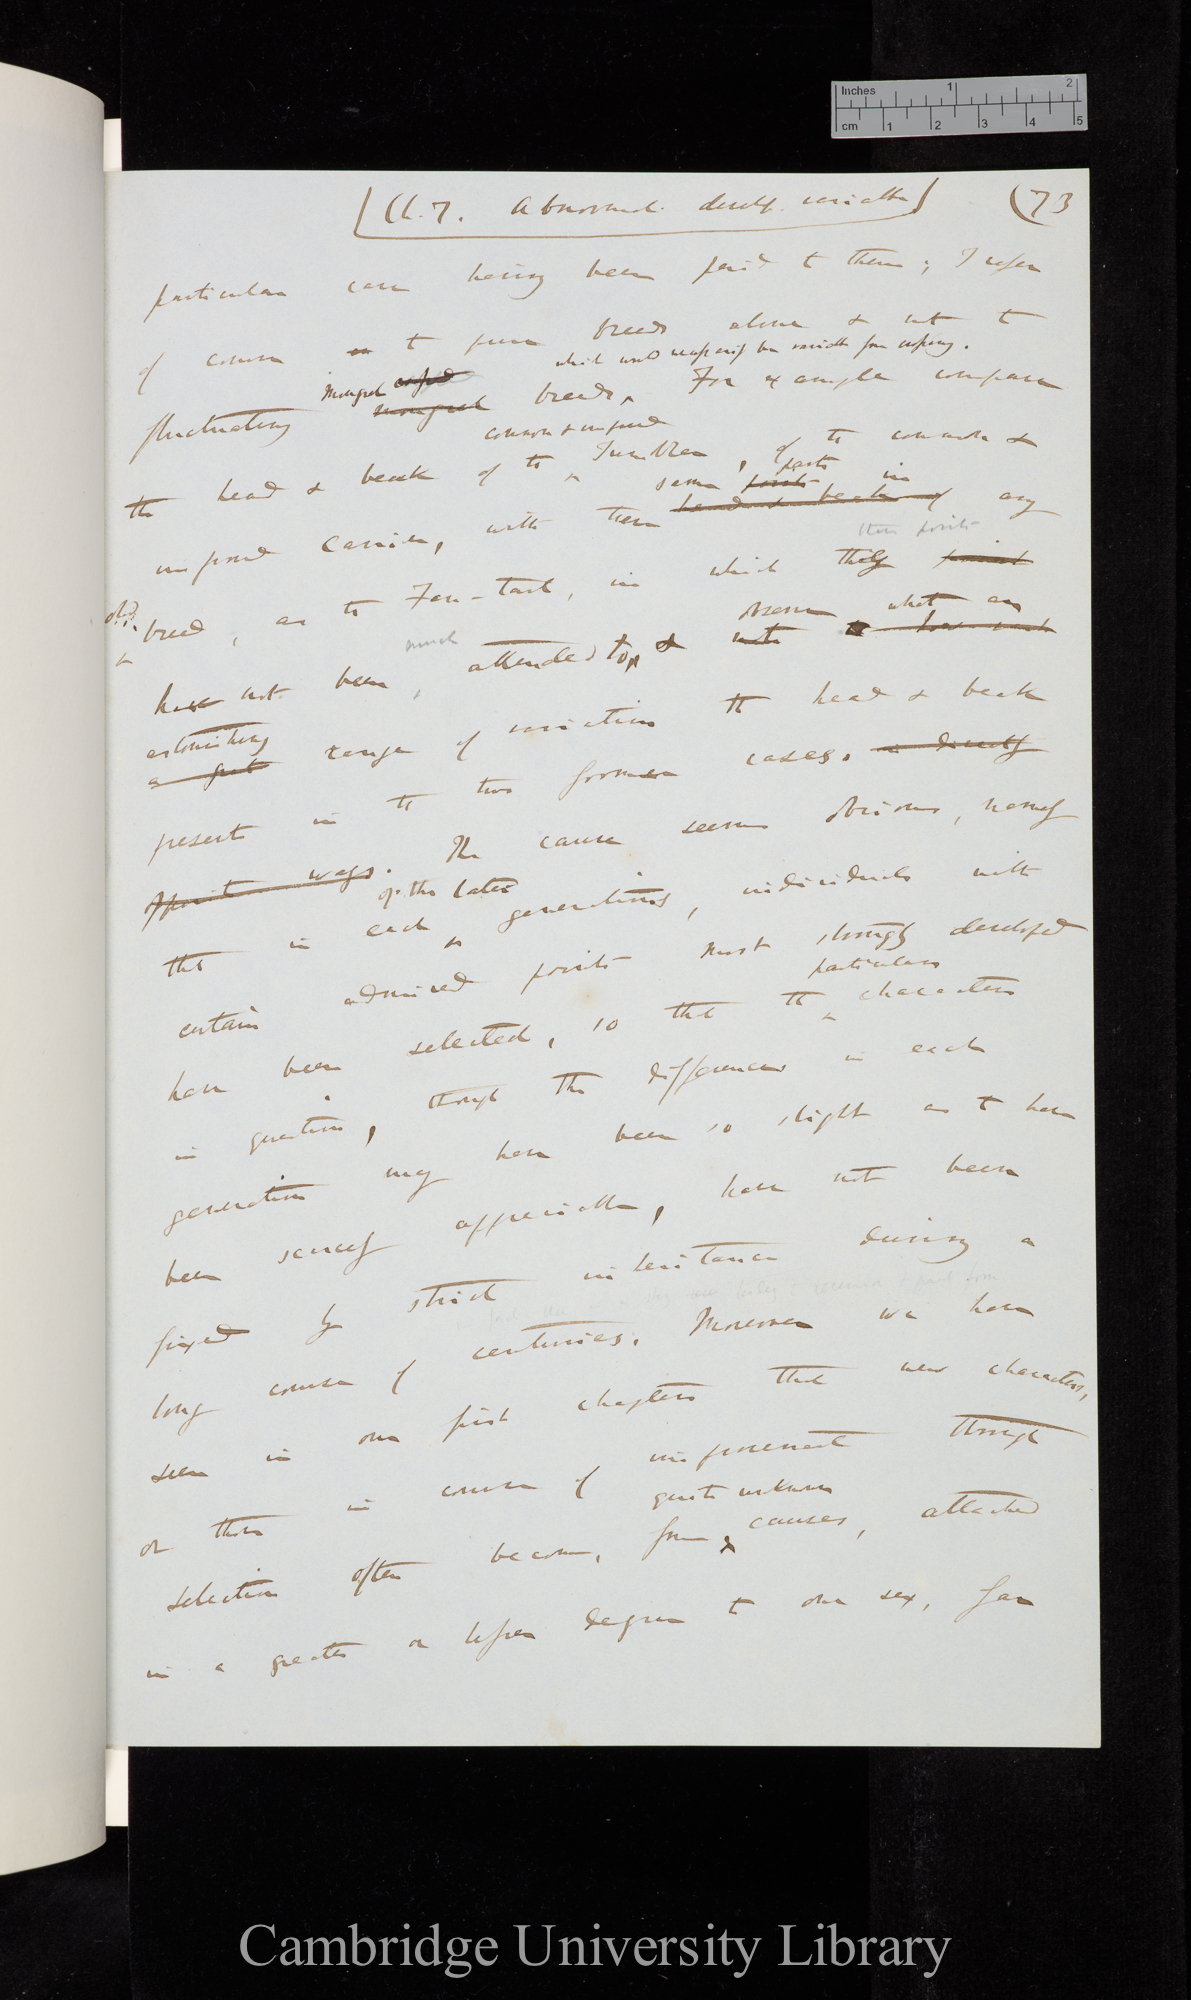 Inches 1 2
cm 1 2 3 4 5
(Ch. 7. Abnormal. develop. variable) (73
particular care having been paid to them; I refer
of course to pure breeds alone & not to
which would necessarily be variable from crossing.
fluctuating Mongrel mongrel breeds. For example compare
common & improved
the head & beak of the Tumbler, of the common &
same parts in
improved Carrier, with these head & beak of any
these points
old
breed, as the Fan-tail, in which they point
much observe what an
have not been, attended to, & note how
astonishing
a great range of variation the head & beak
presents in the two former cases. directly
opposite ways. The cause seems obvious, namely
of the later
that in each generations, individuals with
certain admired points most strongly developed
particular
have been selected, so that the characters
in question, though the differences in each
generation may have been so slight as to have
been scarcely appreciable, have not been
fixed by strict inheritance during a
long course of centuries. Moreover we have
seen in our first chapters that new characters,
or those in course of improvement through
quite unknown
selection often become, from causes, attached
in a greater or lesser degree to one sex, far
Cambridge University Library